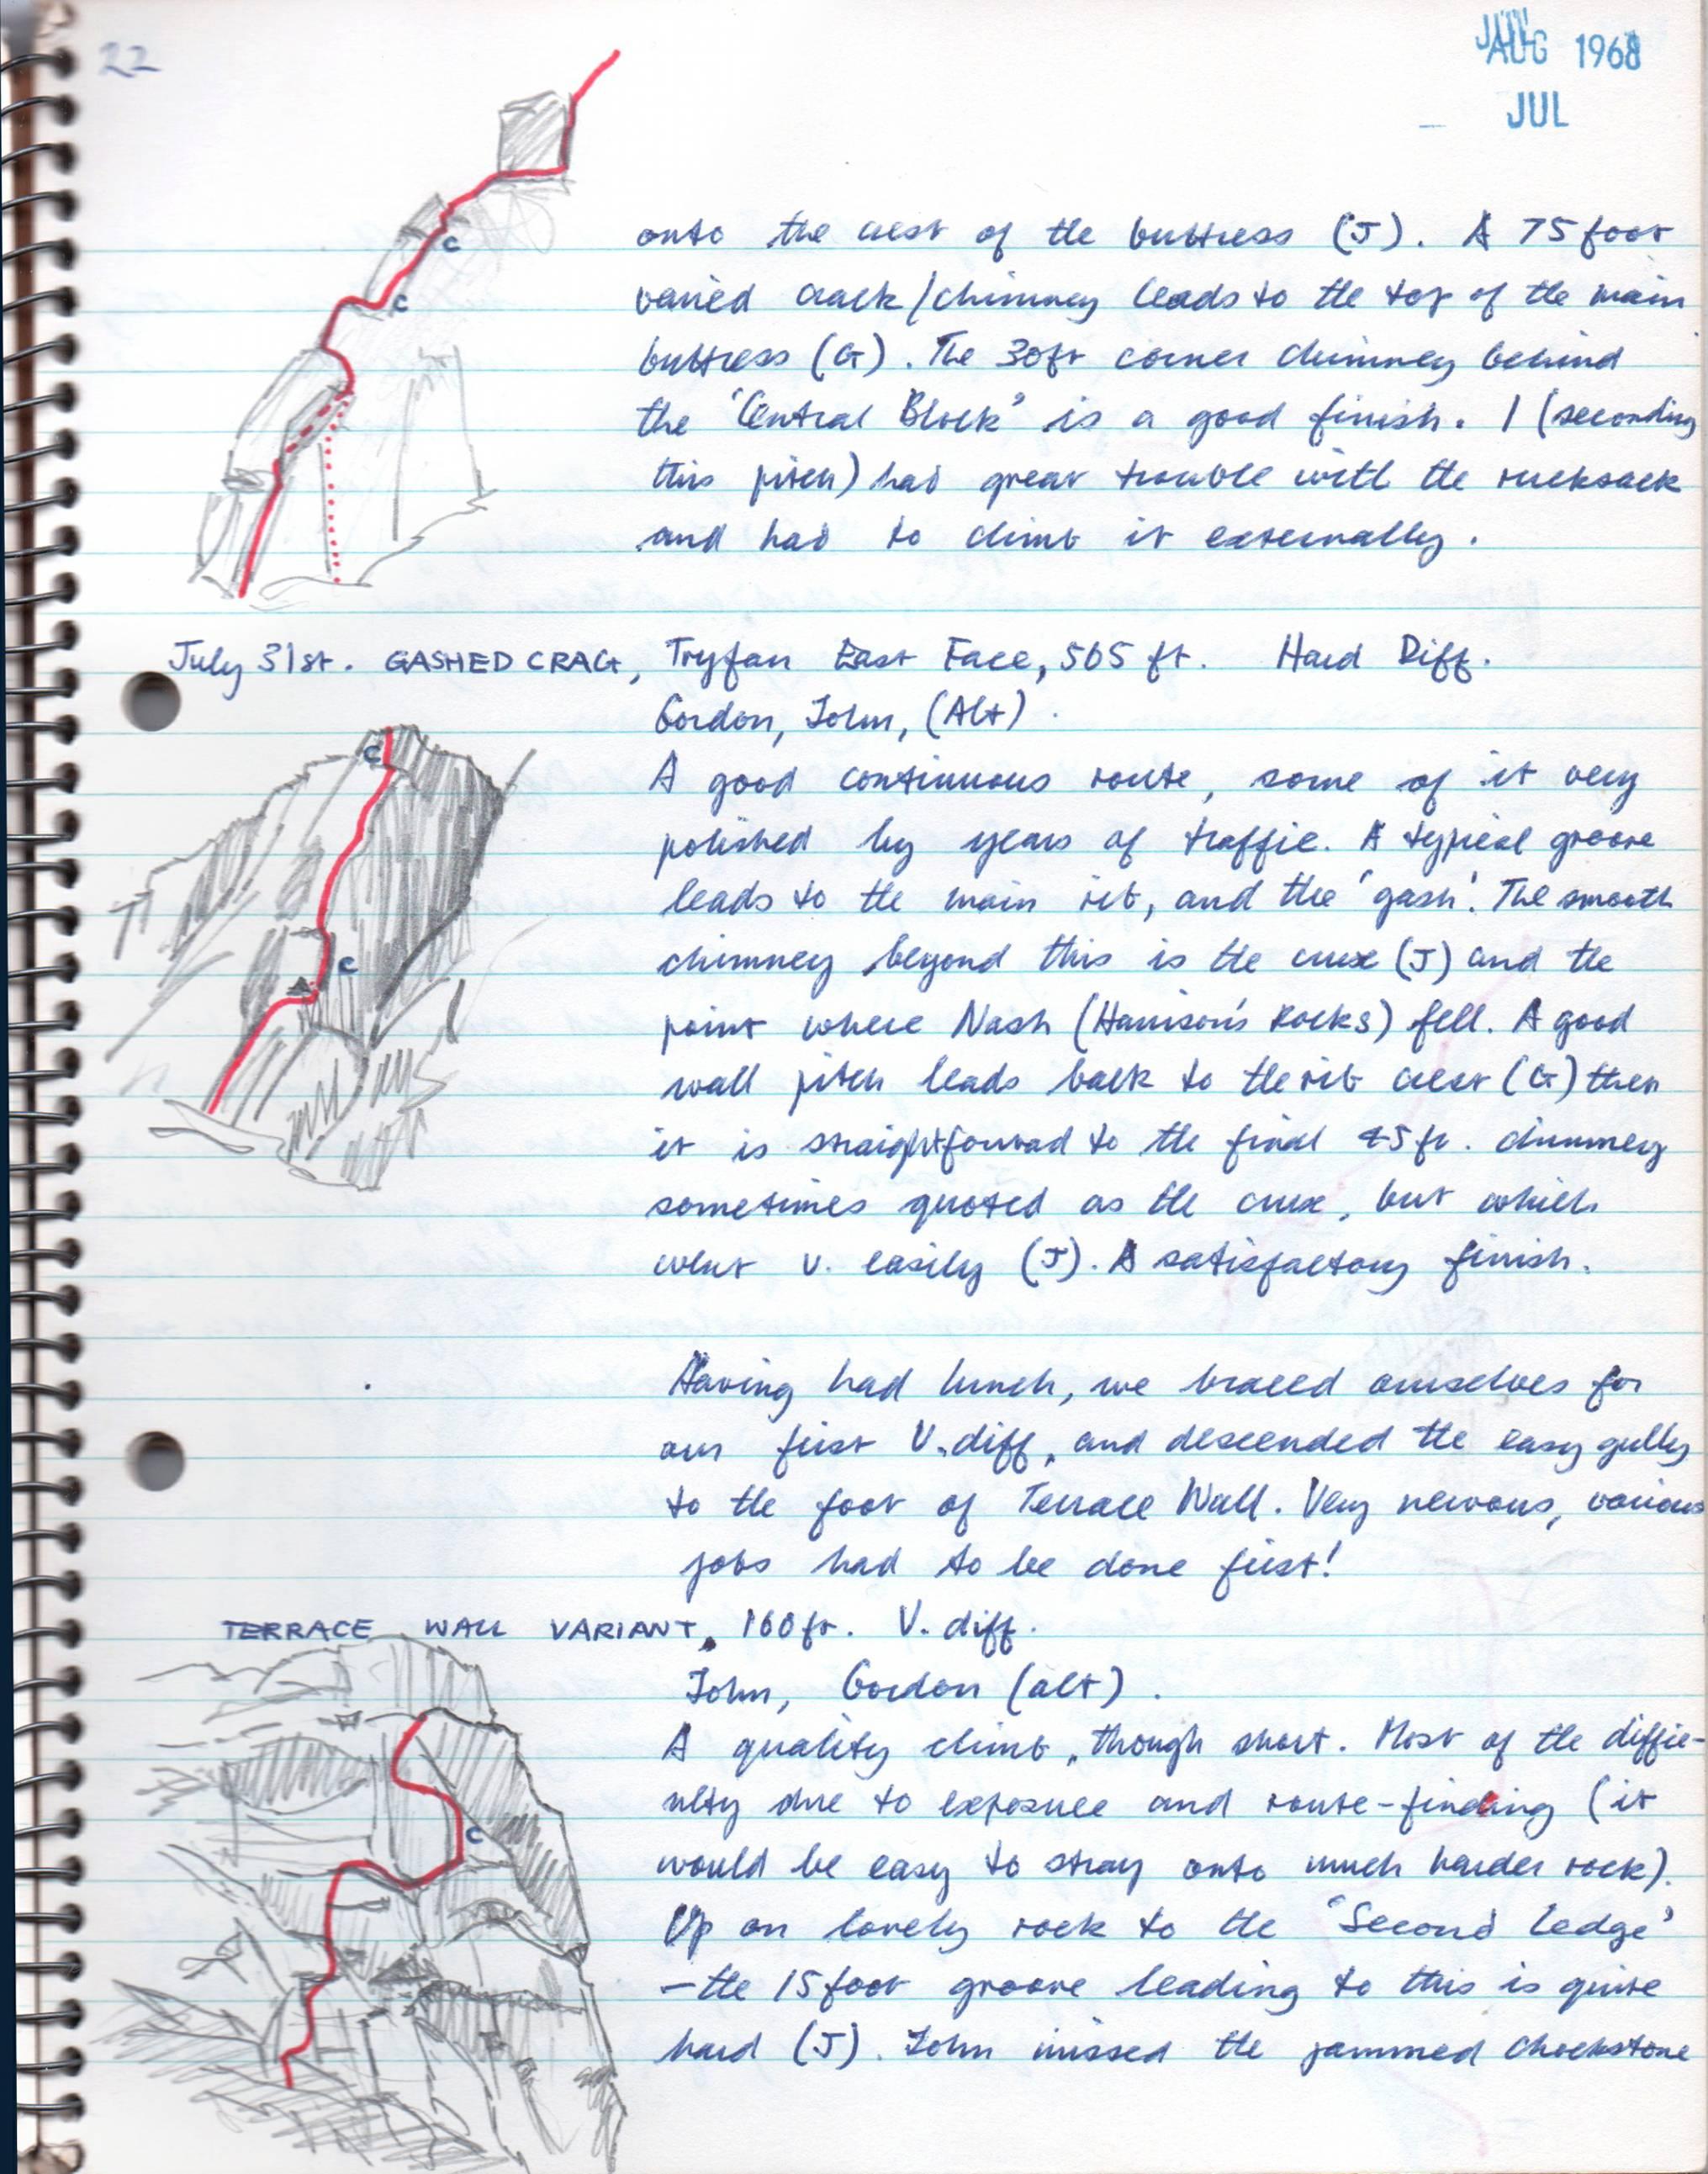 22
AUG 1968
JUL
onto the crest of the buttress (J). A 75 foot
varied crack/chimney leads to the top of the main
buttress (G). The 30ft corner chimney behind
the 'Central Block' is a good finish. I (seconding
this pitch) had great trouble with the rucksack
and had to climb it externally.
C
C
July 31st. GASHED CRAG, Tryfan East Face, 505 ft. Hard Diff.
Gordon, John, (Alt).
A good continuous route, some of it very
polished by years of traffic. A typical groove
leads to the main rib, and the 'gash'. The smooth
chimney beyond this is the crux (J) and the
point where Nash (Harrison's Rocks) fell. A good
wall pitch leads back to the rib crest (G) then
it is straightforward to the final 45 ft. chimney
sometimes quoted as the crux, but which
went v. easily (J). A satisfactory finish.
C
C
Having had lunch, we braced ourselves for
our first V.diff, and descended the easy gully
to the foot of Terrace Wall. Very nervous, various
jobs had to be done first!
TERRACE WALL VARIANT, 160ft. V. diff.
John, Gordon (alt).
A quality climb, though short. Most of the diffic-
ulty due to exposure and route-finding (it
would be easy to stray onto much harder rock).
Up on lovely rock to the 'Second Ledge'
- the 15 foot groove leading to this is quite
hard (J). John missed the jammed chockstone
C